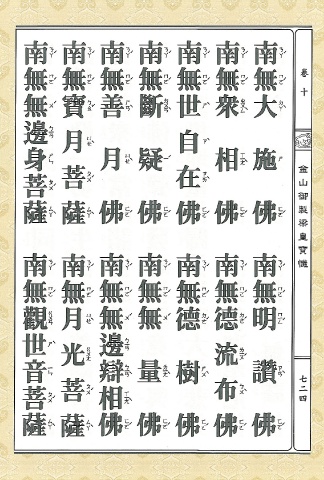 卷十
金山御製梁皇寶懺
七二四
南無大施佛
南無明讚佛
南無眾相佛
南無德流布佛
南無世自在佛
南無德樹佛
南無斷疑佛
南無無量佛
南無善月佛
南無無邊辯相佛
南無寶月菩薩
南無月光菩薩
南無無邊身菩薩
南無觀世音菩薩